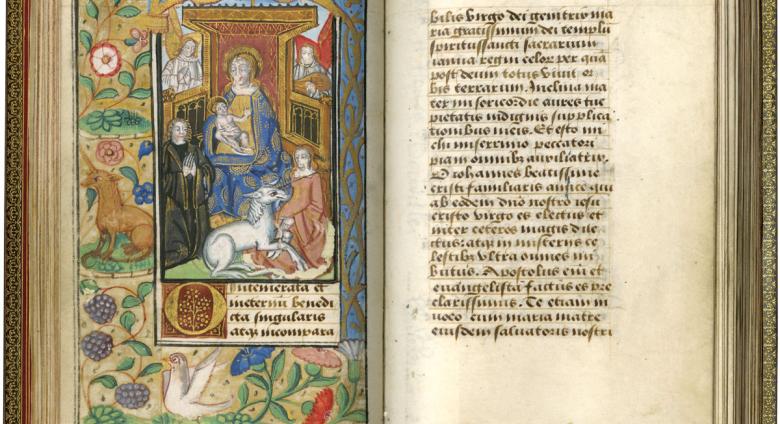 O intemerata et
ineternū benedi
cta singularis
atqȝ incompara
bilis virgo dei genitrix ma
ria gratissimum dei templū
spiritussancti sacrarium
ianua regni celor per quā
post deum totus vivit or
bis terrarum. Inclina ma
ter misericordie aures tue
pietatis indignis supplica
tionibus meis. Et esto mi
chi miserrimo peccatori
piam omnibȝ auxiliatrix.
O iohannes beatissime
cristi familiaris amice qui
ab eodem dnō nostro iesu
cristo virgo es electus et
inter ceteros magis dile
ctus: atqȝ in misteriis ce
lestibȝ ultra omnes im
butus. Apostolus enī et
evangelista factus es pre
clarissimus. Te etiam in
voco cum maria matre
eiusdem salvatoris nostri